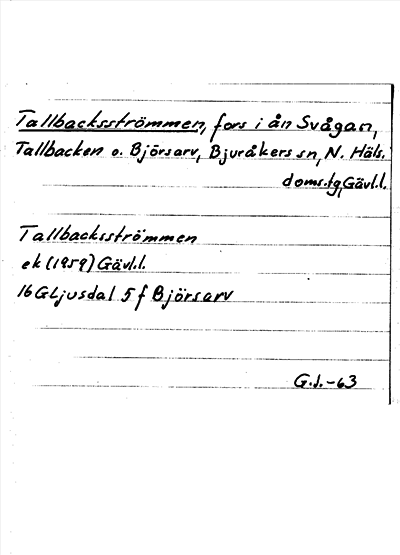 Tallbacksströmmen, fors i ån Svågan,
Tallbacken o. Björsarv, Bjuråkers sn, N. Häls.
doms.tg, Gävl.l.
Tallbacksströmmen
ek (1959) Gävl.l.
16G Ljusdal 5 f Björsarv
G.J.-63